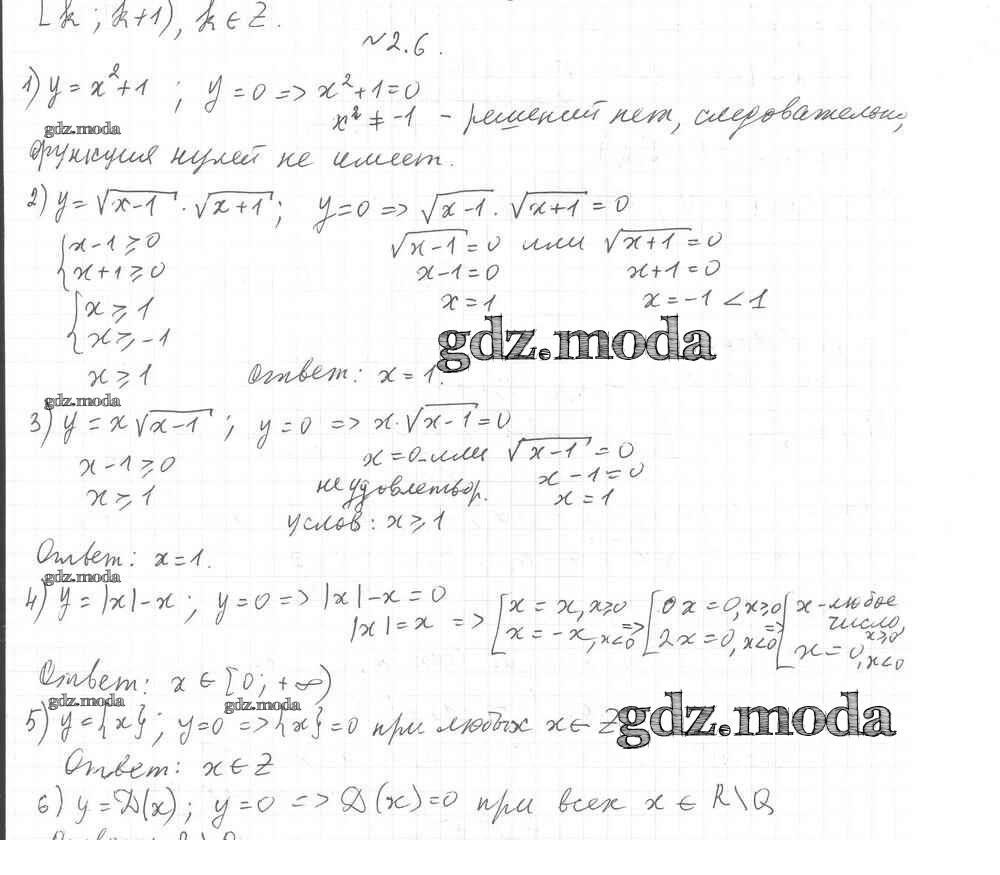 [k; k+1), k ∈ Z.
№2.6.
1) y = x²+1 ; y=0 => x²+1=0
gdz.moda x² ≠ -1 - решений нет, следовательно,
функция нулей не имеет.
2) y = √(x-1) · √(x+1); y=0 => √(x-1) · √(x+1) = 0
{x-1 ≥ 0 √(x-1) = 0 или √(x+1) = 0
{x+1 ≥ 0 x-1=0 x+1=0
{x ≥ 1 x=1 x=-1 < 1
{x ≥ -1 gdz.moda
x ≥ 1 Ответ: x=1.
gdz.moda
3) y = x√(x-1) ; y=0 => x·√(x-1)=0
x-1 ≥ 0 x=0 или √(x-1) = 0
x ≥ 1 не удовлетвор. x-1=0
услов: x ≥ 1 x=1
Ответ: x=1.
gdz.moda
4) y = |x|-x ; y=0 => |x|-x=0
|x|=x => [x = x, x≥0 => [0x=0, x≥0 => [x-любое число, x≥0
[x = -x, x<0 [2x=0, x<0 [x=0, x<0
Ответ: x ∈ [0; +∞)
gdz.moda gdz.moda gdz.moda
5) y={x}; y=0 => {x}=0 при любых x ∈ Z
Ответ: x ∈ Z
6) y=D(x); y=0 => D(x)=0 при всех x ∈ R\Q